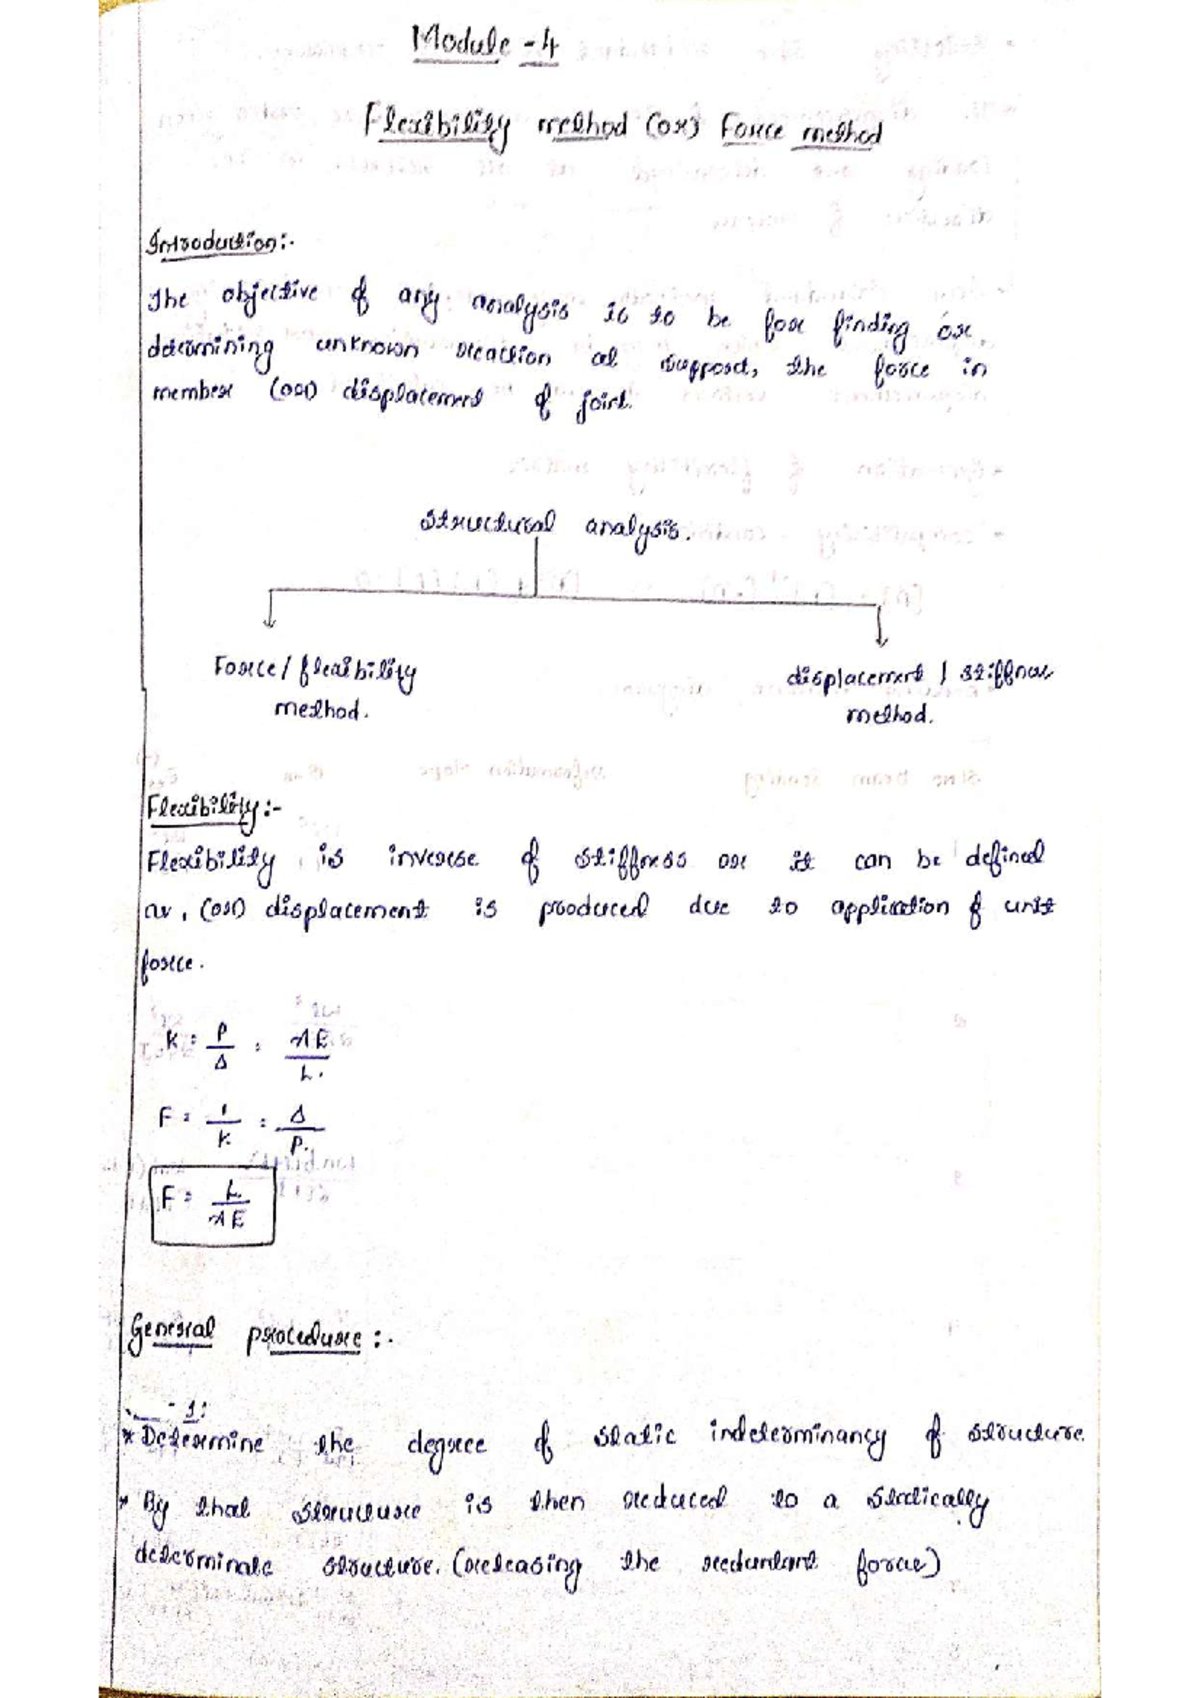 Module - 4
Flexibility method (or) Force method
Introduction:-
The objective of any analysis is to be for finding or
determining unknown reaction at support, the force in
member (or) displacement of joint.
Structural analysis.
Force / flexibility
method.
displacement / stiffness
method.
Flexibility:-
Flexibility is inverse of stiffness or it can be defined
as, (or) displacement is produced due to application of unit
force.
K = P/Δ = AE/L.
F = 1/K = Δ/P.
F = L/AE
General procedure:-
- 1:
* Determine the degree of static indeterminancy of structure.
* By that structure is then reduced to a statically
determinate structure. (releasing the redundant force)